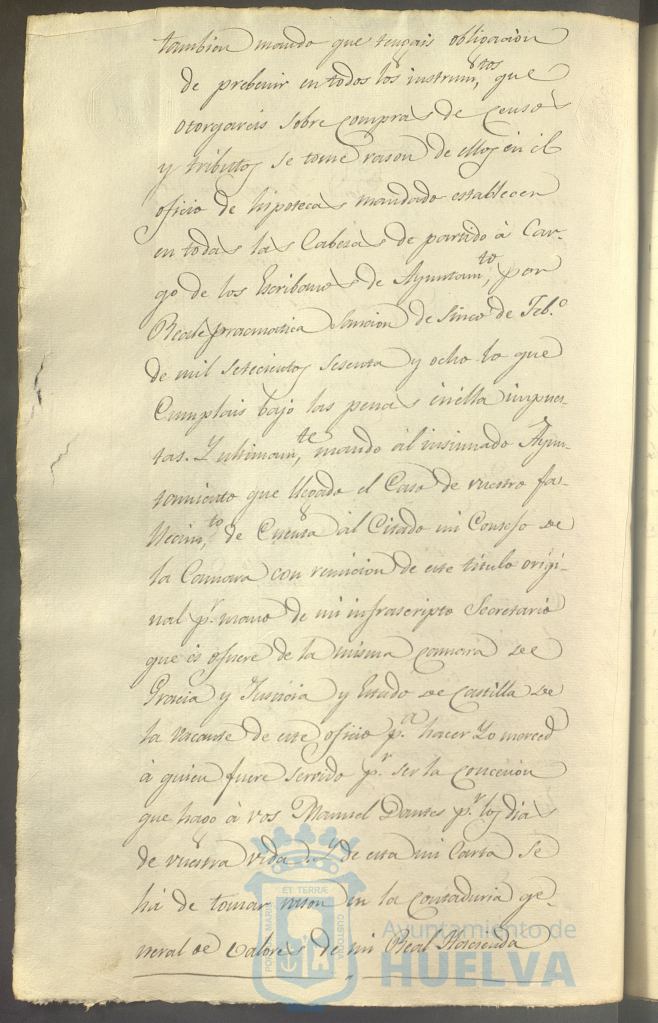 tambien mando que tengais obligacion
de prebenir en todos los instrum,tos que
otorgareis sobre compras de censos
y tributos se tome rason de ellos en el
oficio de hipotecas mandado establecer
en todas las Cabesas de partido à Car-
go de los Escribanos de Ayuntam,to por
Real pracmatica sancion de sinco de Feb.o
de mil setecientos sesenta y ocho lo que
Cumplais bajo las penas en ella impues-
tas. Y ultimam,te mando al insinuado Ayun-
tamiento que llegado el Caso de vuestro fa-
llecim,to de Cuenta al Citado mi Consejo de
la Camara con remicion de este titulo origi-
nal p.r mano de mi infrascripto Secretario
que es ofuere de la misma camara de
Gracia y Justicia y Estado de Castilla de
la vacante de este oficio p.a hacer Yo merced
à quien fuere servido p.r ser la concecion
que hago à vos Manuel Dantes p.r los dias
de vuestra vida. Y de esta mi Carta se
hà de tomar rason en la contaduria ge-
neral de valores de mi Real Hacienda
PORTUS MARIS
ET TERRÆ
CUSTODIA
Ayuntamiento de
HUELVA